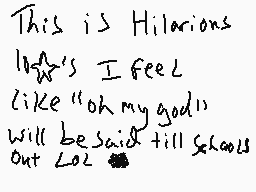 This is Hilarions
lo☆'s I feel
like "oh my god"
will be said till schools
out LOL